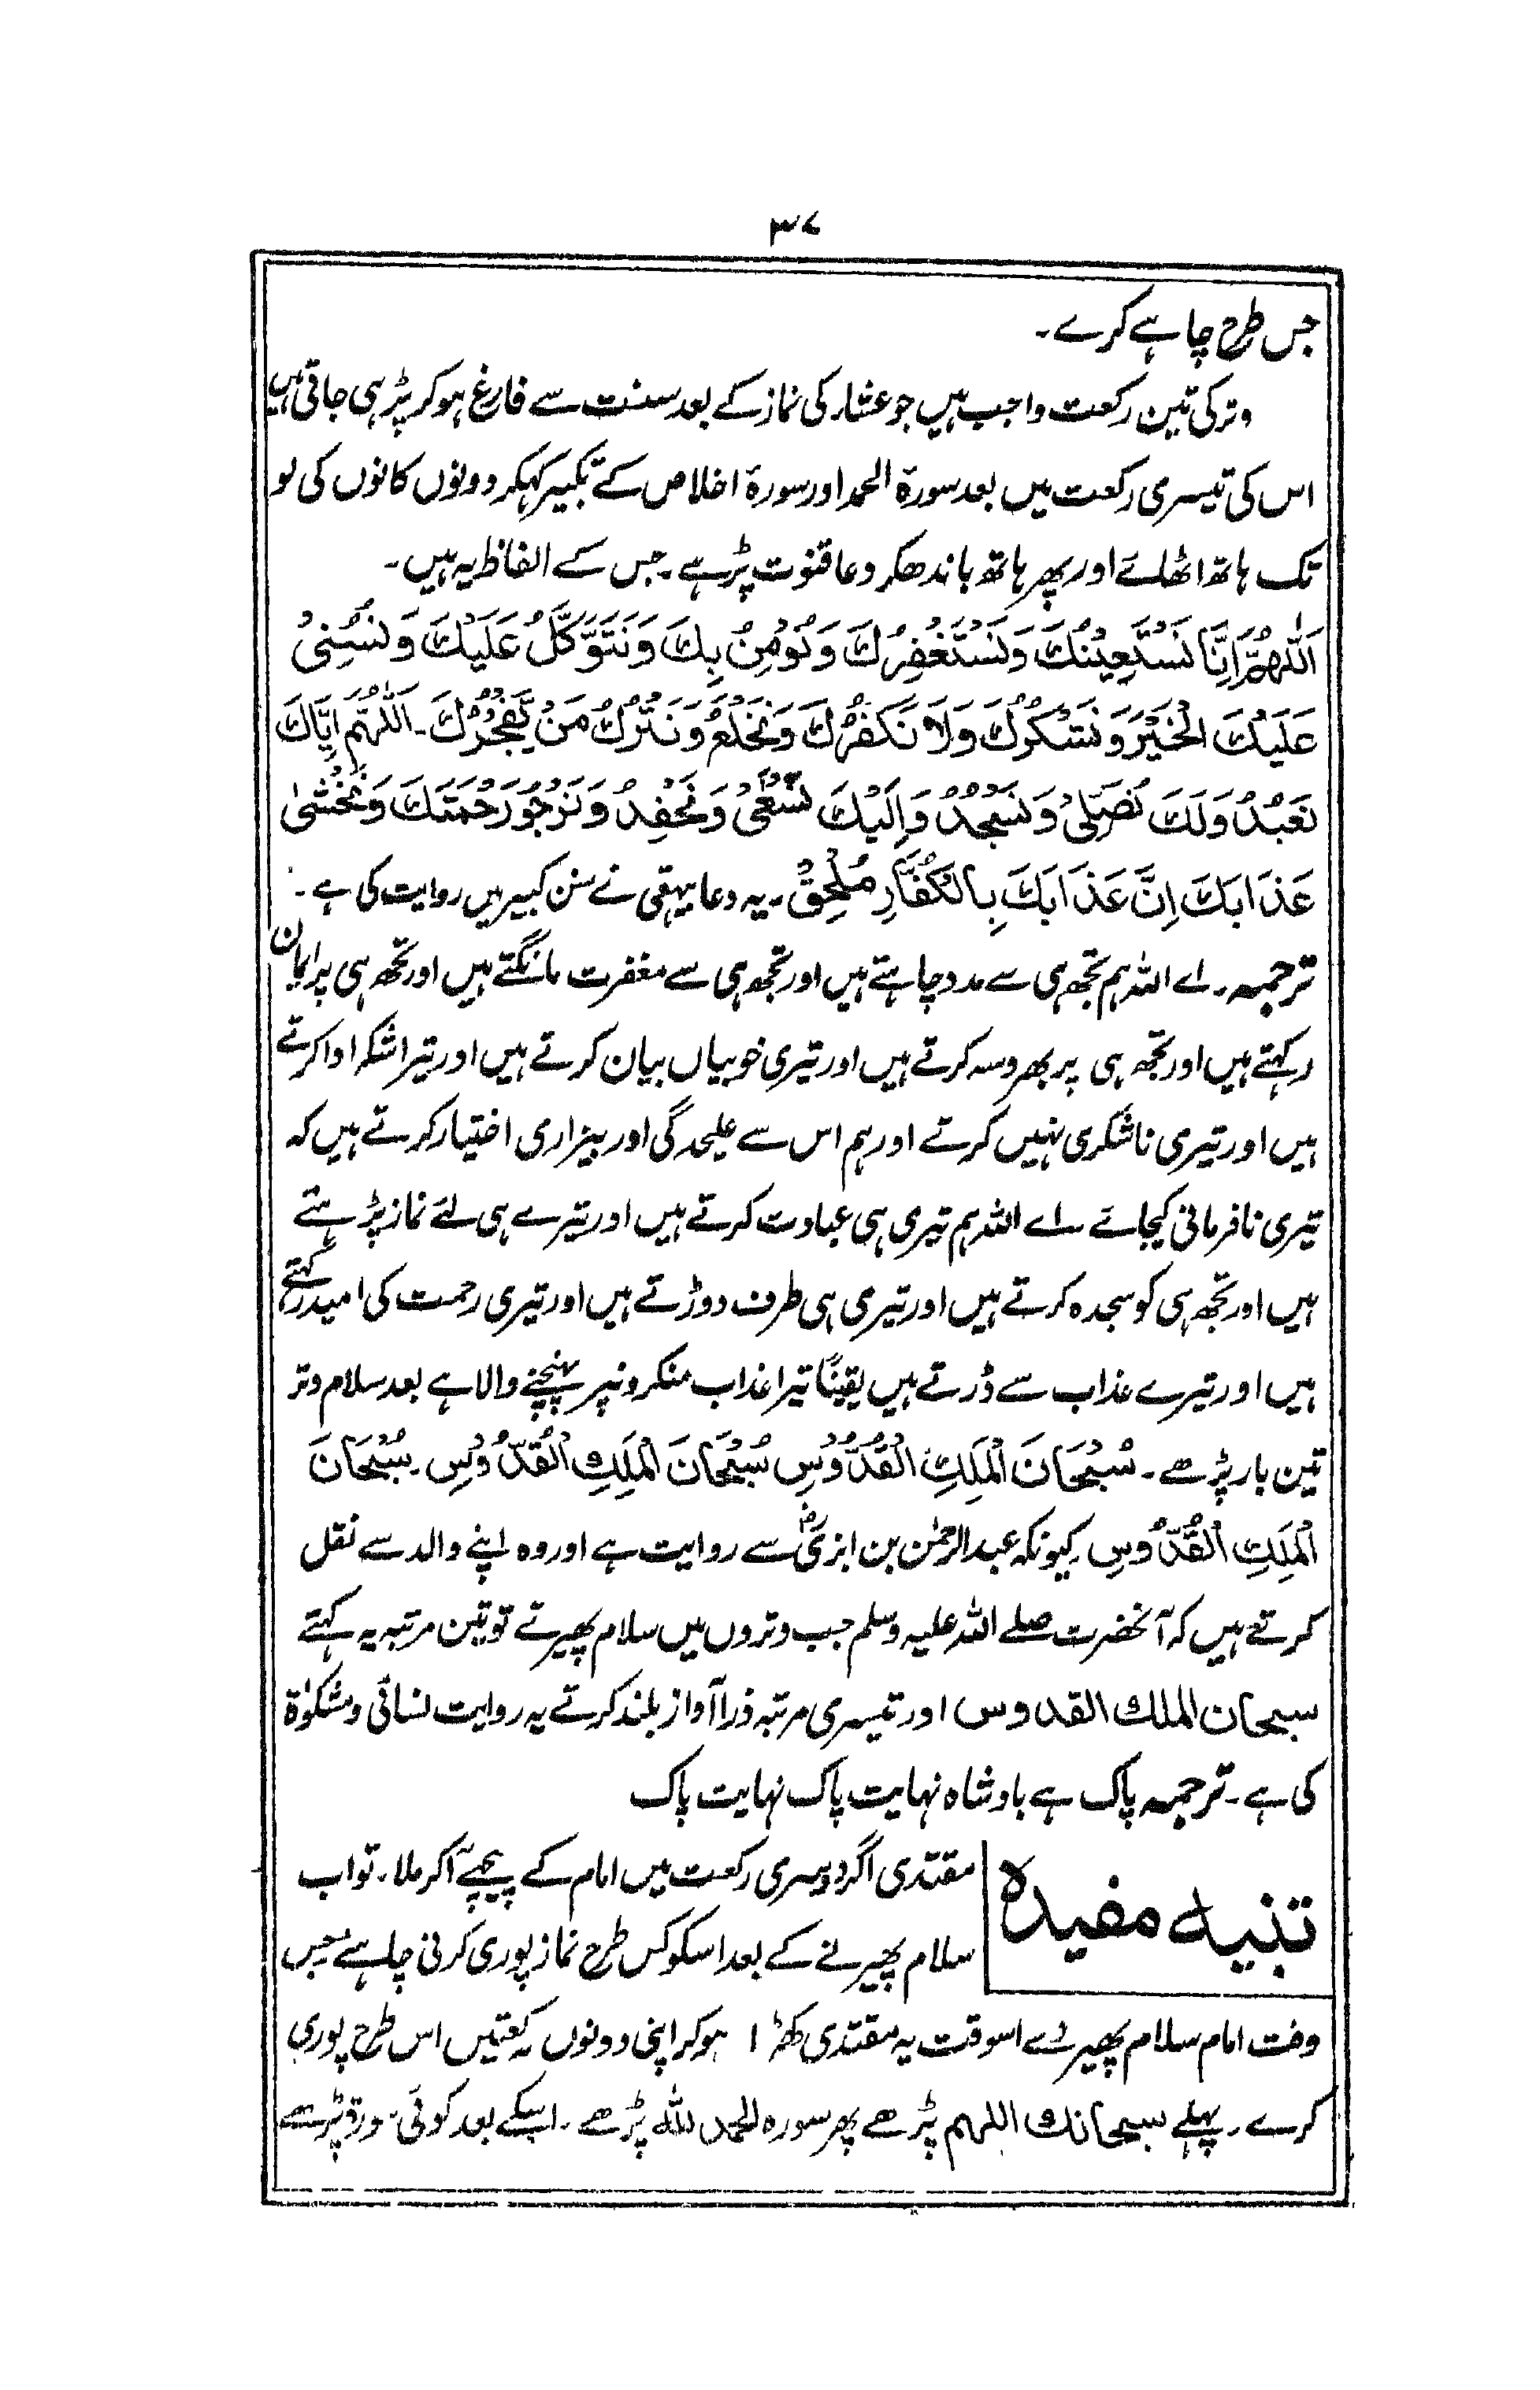 ۳۷
جس طرح چاہے کرے۔
وتر کی تین رکعت واجب ہیں جو عشار کی نماز کے بعد سنت سے فارغ ہو کر پڑہی جاتی ہیں
اس کی تیسری رکعت میں بعد سورۃ الحمد اور سورۃ اخلاص کے تکبیر کہکر دونوں کانوں کی لو
تک ہاتھ اٹھائے اور پھر ہاتھ باندھکر دعا قنوت پڑہے۔ جس کے الفاظ یہ ہیں۔
اَللّٰهُمَّ اِنَّا نَسْتَعِيْنُكَ وَنَسْتَغْفِرُكَ وَنُؤْمِنُ بِكَ وَنَتَوَكَّلُ عَلَيْكَ وَنُثْنِىْ
عَلَيْكَ الْخَيْرَ وَنَشْكُرُكَ وَلَا نَكْفُرُكَ وَنَخْلَعُ وَنَتْرُكُ مَنْ يَّفْجُرُكَ۔ اَللّٰهُمَّ اِيَّاكَ
نَعْبُدُ وَلَكَ نُصَلِّىْ وَنَسْجُدُ وَاِلَيْكَ نَسْعٰى وَنَحْفِدُ وَنَرْجُوْ رَحْمَتَكَ وَنَخْشٰى
عَذَابَكَ اِنَّ عَذَابَكَ بِالْكُفَّارِ مُلْحِقٌ۔ یہ دعا بیہقی نے سنن کبیر میں روایت کی ہے۔
ترجمہ۔ اے اللہ ہم تجھ ہی سے مدد چاہتے ہیں اور تجھ ہی سے مغفرت مانگتے ہیں اور تجھ ہی پر ایمان
رکہتے ہیں اور تجھ ہی پر بھروسہ کرتے ہیں اور تیری خوبیاں بیان کرتے ہیں اور تیرا شکر ادا کرتے
ہیں اور تیری ناشکری نہیں کرتے اور ہم اس سے علیحدگی اور بیزاری اختیار کرتے ہیں کہ
تیری نافرمانی کیجائے۔ اے اللہ ہم تیری ہی عبادت کرتے ہیں اور تیرے ہی لئے نماز پڑہتے
ہیں اور تجھ ہی کو سجدہ کرتے ہیں اور تیری ہی طرف دوڑتے ہیں اور تیری رحمت کی امید رکہتے
ہیں اور تیرے عذاب سے ڈرتے ہیں یقینًا تیرا عذاب منکروں پر پہنچنے والا ہے بعد سلام وتر
تین بار پڑھے۔ سُبْحَانَ الْمَلِكِ الْقُدُّوْسِ سُبْحَانَ الْمَلِكِ الْقُدُّوْسِ۔ سُبْحَانَ
الْمَلِكِ الْقُدُّوْسِ۔ کیونکہ عبدالرحمٰن بن ابزیٰؓ سے روایت ہے اور وہ اپنے والد سے نقل
کرتے ہیں کہ آنحضرت صلے اللہ علیہ وسلم جب وتروں میں سلام پھیرتے تو تین مرتبہ یہ کہتے
سبحان الملك القدوس اور تیسری مرتبہ ذرا آواز بلند کرتے یہ روایت نسائی و مشکوٰۃ
کی ہے۔ ترجمہ پاک ہے بادشاہ نہایت پاک نہایت پاک
تنبیہ مفیدہ
مقتدی اگر دوسری رکعت میں امام کے پیچہے آکر ملا۔ تو اب
سلام پھیرنے کے بعد اسکو کس طرح نماز پوری کرنی چاہئے۔ جس
وقت امام سلام پھیر دے اسوقت یہ مقتدی کھڑا ہو کر اپنی دونوں رکعتیں اس طرح پوری
کرے۔ پہلے سبحانك اللہم پڑھے پھر سورہ الحمد للہ پڑھے۔ اسکے بعد کوئی سورۃ پڑھے